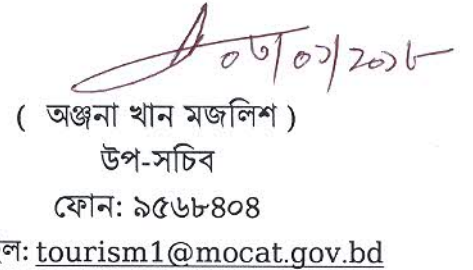 ( অঞ্জনা খান মজলিশ )
উপ-সচিব
ফোন: ৯৫৬৮৪০৪
ল: tourism1@mocat.gov.bd